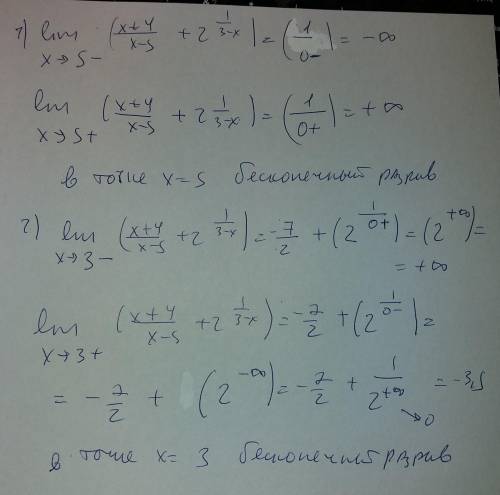 1) lim x→5- (x+4/x-5 + 2^(1/3-x)) = (1/0-) = -∞
lim x→5+ (x+4/x-5 + 2^(1/3-x)) = (1/0+) = +∞
в точке x=5 бесконечный разрыв
2) lim x→3- (x+4/x-5 + 2^(1/3-x)) = -7/2 + (2^(1/0+)) = (2^(+∞)) =
= +∞
lim x→3+ (x+4/x-5 + 2^(1/3-x)) = -7/2 + (2^(1/0-)) =
= -7/2 + (2^(-∞)) = -7/2 + 1/2^(+∞) →0 = -3,5
в точке x= 3 бесконечный разрыв